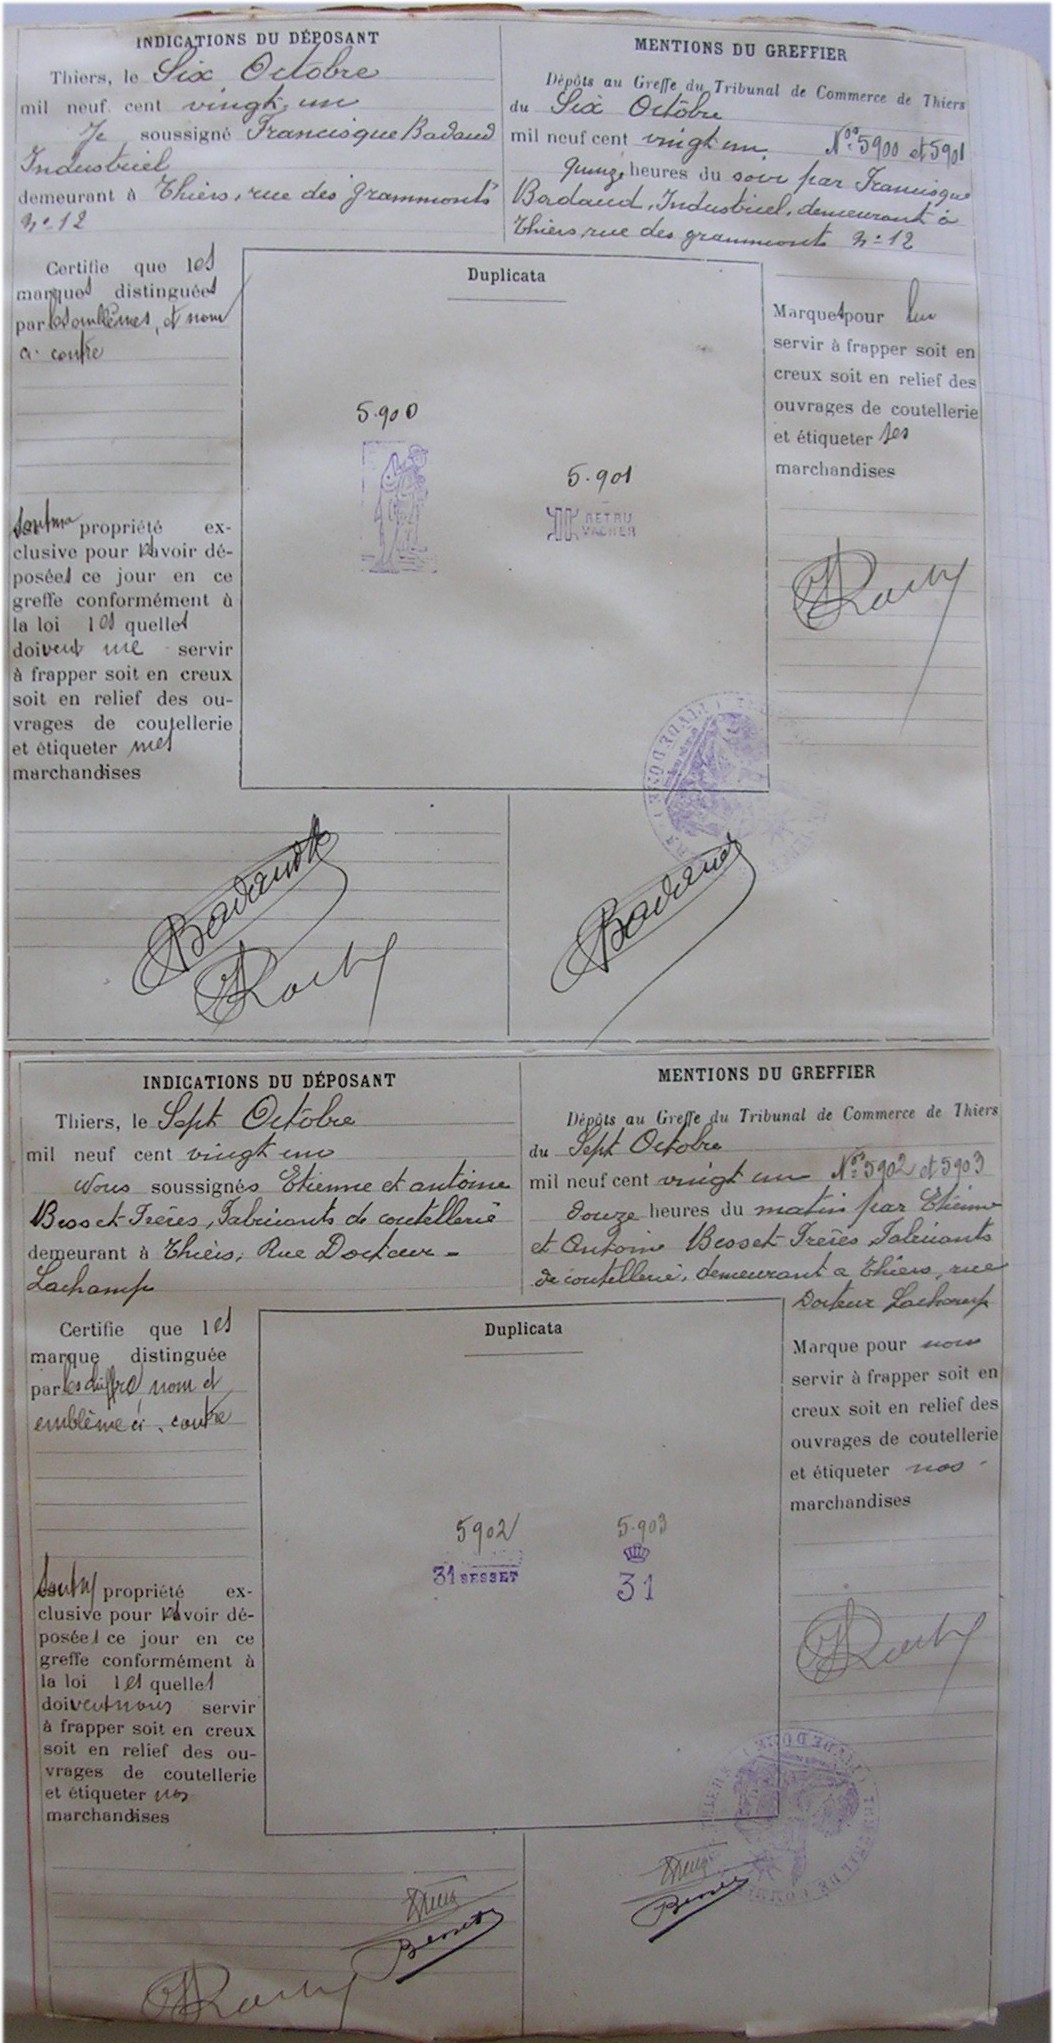 INDICATIONS DU DÉPOSANT
Thiers, le Six Octobre
mil neuf cent vingt un
Je soussigné Francisque Badaud
Industriel
demeurant à Thiers, rue des grammonts
No 12
MENTIONS DU GREFFIER
Dépôts au Greffe du Tribunal de Commerce de Thiers
du Six Octobre
mil neuf cent vingt un Nos 5900 et 5901
quinze heures du soir par Francisque
Badaud, Industriel, demeurant à
Thiers, rue des grammonts No 12
Certifie que les
marques distinguées
par les emblêmes, et nom
ci-contre
sont ma propriété ex-
clusive pour les avoir dé-
posées ce jour en ce
greffe conformément à
la loi lesquelles
doivent me servir
à frapper soit en creux
soit en relief des ou-
vrages de coutellerie
et étiqueter mes
marchandises
Duplicata
5.900
5.901
RETRU
VACHER
Marques pour lui
servir à frapper soit en
creux soit en relief des
ouvrages de coutellerie
et étiqueter ses
marchandises
Badaud
Badaud
INDICATIONS DU DÉPOSANT
Thiers, le Sept Octobre
mil neuf cent vingt un
Nous soussignés Etienne et antoine
Besset Frères, Fabricants de coutellerie
demeurant à Thiers, Rue Docteur-
Lachamp
MENTIONS DU GREFFIER
Dépôts au Greffe du Tribunal de Commerce de Thiers
du Sept Octobre
mil neuf cent vingt un Nos 5902 et 5903
douze heures du matin par Etienne
et Antoine Besset Frères Fabricants
de coutellerie, demeurant à Thiers, rue
Docteur Lachamp
Certifie que les
marque distinguée
par les chiffre, nom et
emblême ci-contre
propriété ex-
clusive pour les avoir dé-
posées ce jour en ce
greffe conformément à
la loi lesquelles
doivent nous servir
à frapper soit en creux
soit en relief des ou-
vrages de coutellerie
et étiqueter nos
marchandises
Duplicata
5902
31 BESSET
5.903
31
Marque pour nous
servir à frapper soit en
creux soit en relief des
ouvrages de coutellerie
et étiqueter nos
marchandises
Besset
Besset